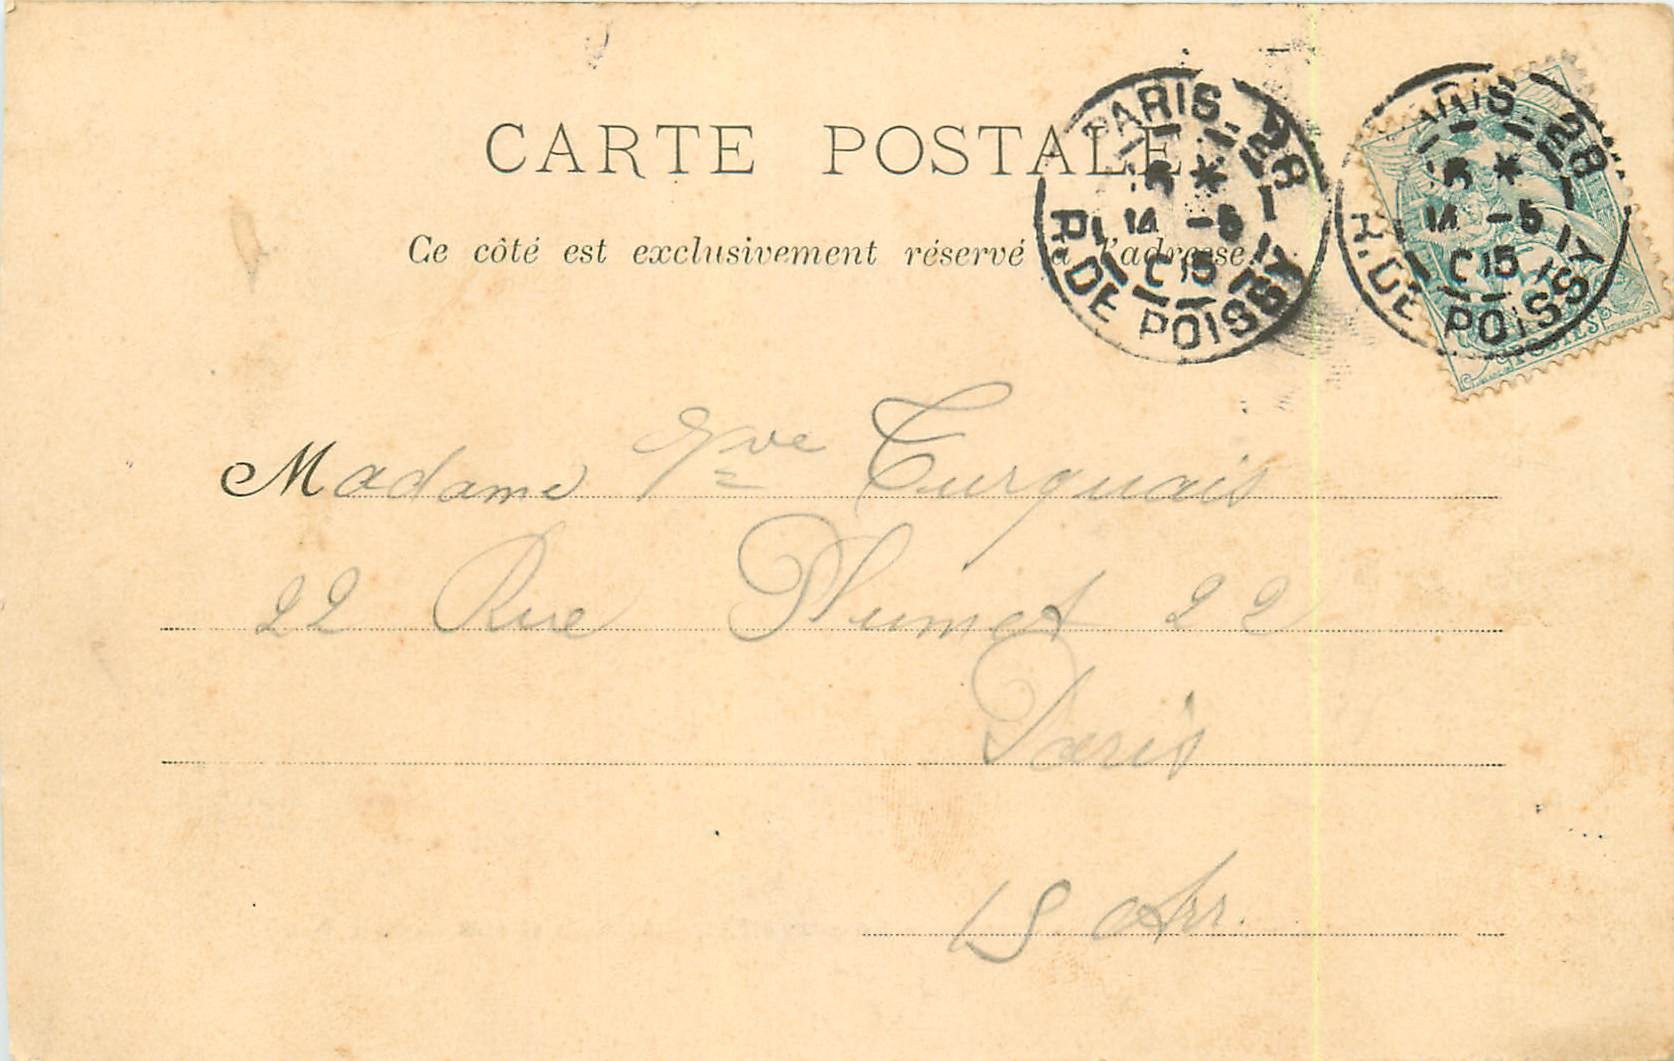 CARTE POSTALE
Ce côté est exclusivement réservé à l'adresse.
PARIS-28
14 -5
R. DE POISSY
PARIS-28
14 -5
R. DE POISSY
POSTES
Madame Vve Turquais
22 Rue Plumet 22
Paris
15 Arr.